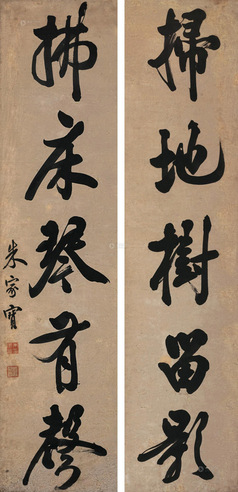 掃地樹留影
拂床琴有聲
朱家寶